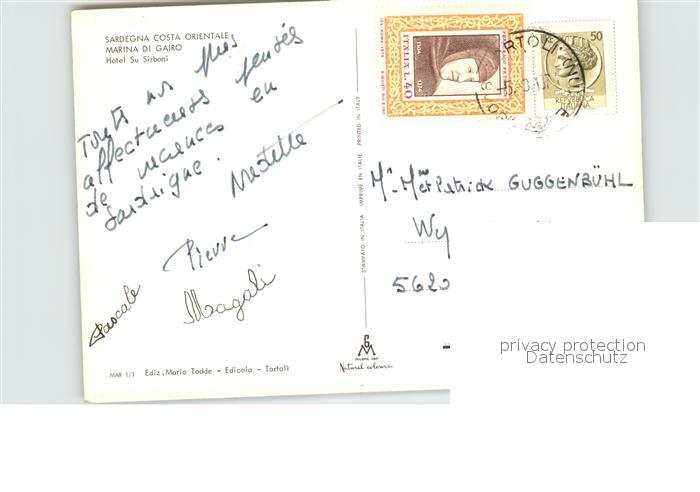 SARDEGNA COSTA ORIENTALE
MARINA DI GAIRO
Hotel Su Sirboni
Toutes nos plus
affectueuses pensées
de vacances en
Sardaigne.
Pierre
Pascale
Magali
MAR 1/1 Ediz. Mario Todde - Edicola - Tortolì
STAMPATO IN ITALIA IMPRIMÉ EN ITALIE PRINTED IN ITALY
GM
MILANO
Natural colours
ITALIA L.40
50
M. Mme Patrick GUGGENBÜHL
Wy
5620
privacy protection
Datenschutz